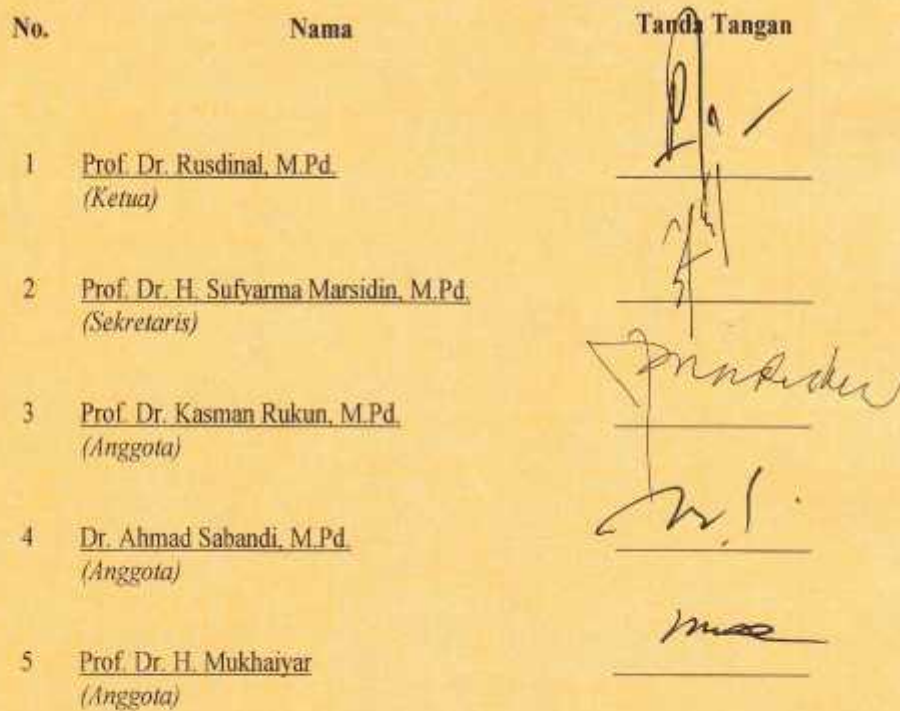 No. Nama Tanda Tangan
1 Prof. Dr. Rusdinal, M.Pd.
(Ketua)
2 Prof. Dr. H. Sufyarma Marsidin, M.Pd.
(Sekretaris)
3 Prof. Dr. Kasman Rukun, M.Pd.
(Anggota)
4 Dr. Ahmad Sabandi, M.Pd.
(Anggota)
5 Prof. Dr. H. Mukhaiyar
(Anggota)